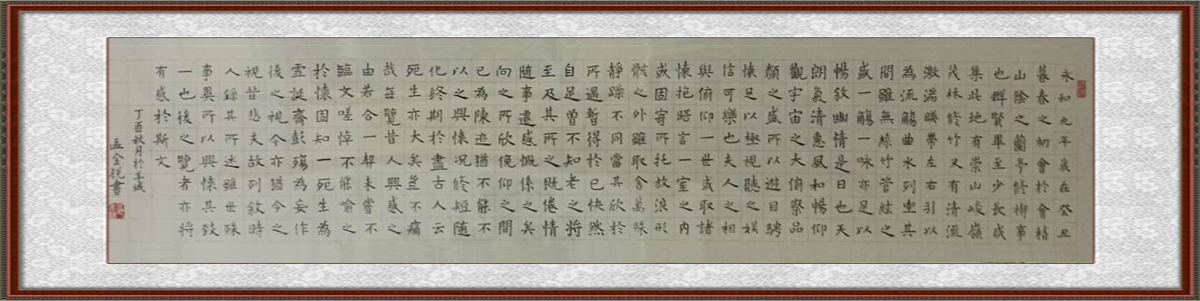 永和九年歲在癸丑
暮春之初會於會稽
山陰之蘭亭修禊事
也群賢畢至少長咸
集此地有崇山峻嶺
茂林修竹又有清流
激湍暎帶左右引以
為流觴曲水列坐其
間雖無絲竹管絃之
盛一觴一咏亦足以
暢敘幽情是日也天
朗氣清惠風和暢仰
觀宇宙之大俯察品
類之盛所以遊目騁
懷足以極視聽之娛
信可樂也夫人之相
與俯仰一世或取諸
懷抱晤言一室之內
或因寄所托放浪形
骸之外雖取舍萬殊
靜躁不同當其欣於
所遇暫得於己快然
自足曾不知老之將
至及其所之既倦情
隨事遷感慨係之矣
向之所欣俛仰之間
已為陳迹猶不能不
以之興懷況修短隨
化終期於盡古人云
死生亦大矣豈不痛
哉每覽昔人興感之
由若合一契未嘗不
臨文嗟悼不能喻之
於懷固知一死生為
虛誕齊彭殤為妄作
後之視今亦猶今之
視昔悲夫故列敘時
人錄其所述雖世殊
事異所以興懷其致
一也後之覽者亦將
有感於斯文
丁酉秋月於羊城
孟書